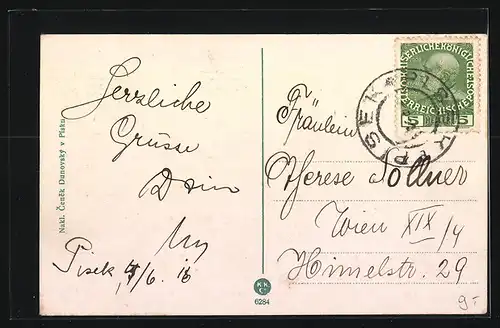 Herzliche
Grüsse
Pisek 4/6.
Nakl. Čeněk Dunovský v Písku
K K
C
6284
KAISERLICHE KÖNIGLICHE
ÖSTERREICHISCHE
5 5
PISEK
Fräulein
Therese Dollner
Wien XIX/4
Himelstr. 29
9-